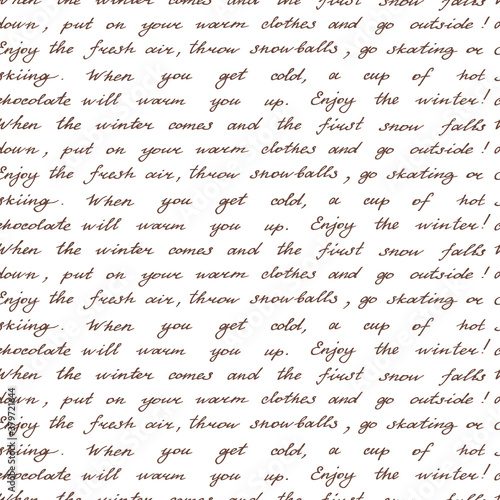 When the winter comes and the first snow falls
down, put on your warm clothes and go outside!
Enjoy the fresh air, throw snowballs, go skating or
skiing. When you get cold, a cup of hot
chocolate will warm you up. Enjoy the winter!
When the winter comes and the first snow falls
down, put on your warm clothes and go outside!
Enjoy the fresh air, throw snowballs, go skating or
skiing. When you get cold, a cup of hot
chocolate will warm you up. Enjoy the winter!
When the winter comes and the first snow falls
down, put on your warm clothes and go outside!
Enjoy the fresh air, throw snowballs, go skating or
skiing. When you get cold, a cup of hot
chocolate will warm you up. Enjoy the winter!
When the winter comes and the first snow falls
down, put on your warm clothes and go outside!
Enjoy the fresh air, throw snowballs, go skating or
skiing. When you get cold, a cup of hot
chocolate will warm you up. Enjoy the winter!
When the winter comes and the first snow falls